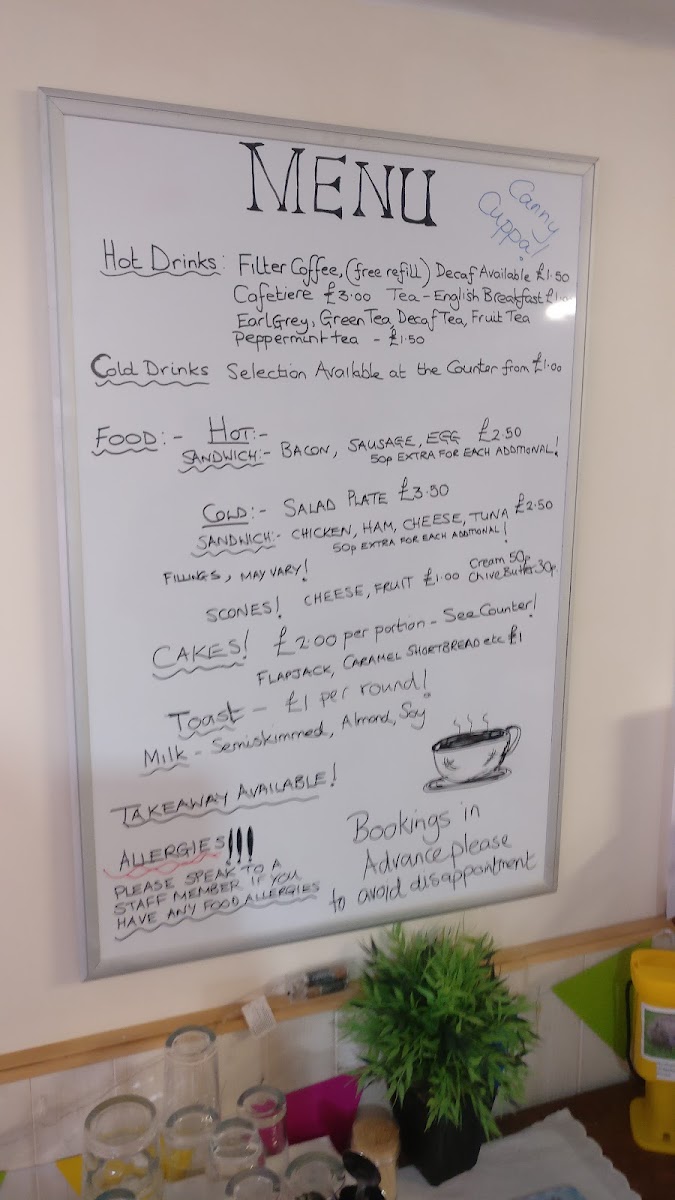 MENU
Canny
Cuppa!
Hot Drinks: Filter Coffee, (free refill) Decaf Available £1.50
Cafetiere £3.00 Tea - English Breakfast
Earl Grey, Green Tea, Decaf Tea, Fruit Tea
Peppermint tea - £1.50
Cold Drinks Selection Available at the Counter from £1.00
FOOD:- HOT:-
SANDWICH:- BACON, SAUSAGE, EGG £2.50
50p EXTRA FOR EACH ADDITIONAL!
COLD:- SALAD PLATE £3.50
SANDWICH:- CHICKEN, HAM, CHEESE, TUNA £2.50
50p EXTRA FOR EACH ADDITIONAL!
FILLINGS, MAY VARY!
SCONES! CHEESE, FRUIT £1.00 Cream 50p
Chive Butter 30p.
CAKES! £2.00 per portion - See Counter!
FLAPJACK, CARAMEL SHORTBREAD etc £1
Toast - £1 per round!
Milk - Semiskimmed, Almond, Soy
TAKEAWAY AVAILABLE!
ALLERGIES!!!
PLEASE SPEAK TO A
STAFF MEMBER IF YOU
HAVE ANY FOOD ALLERGIES
Bookings in
Advance please
to avoid disappointment